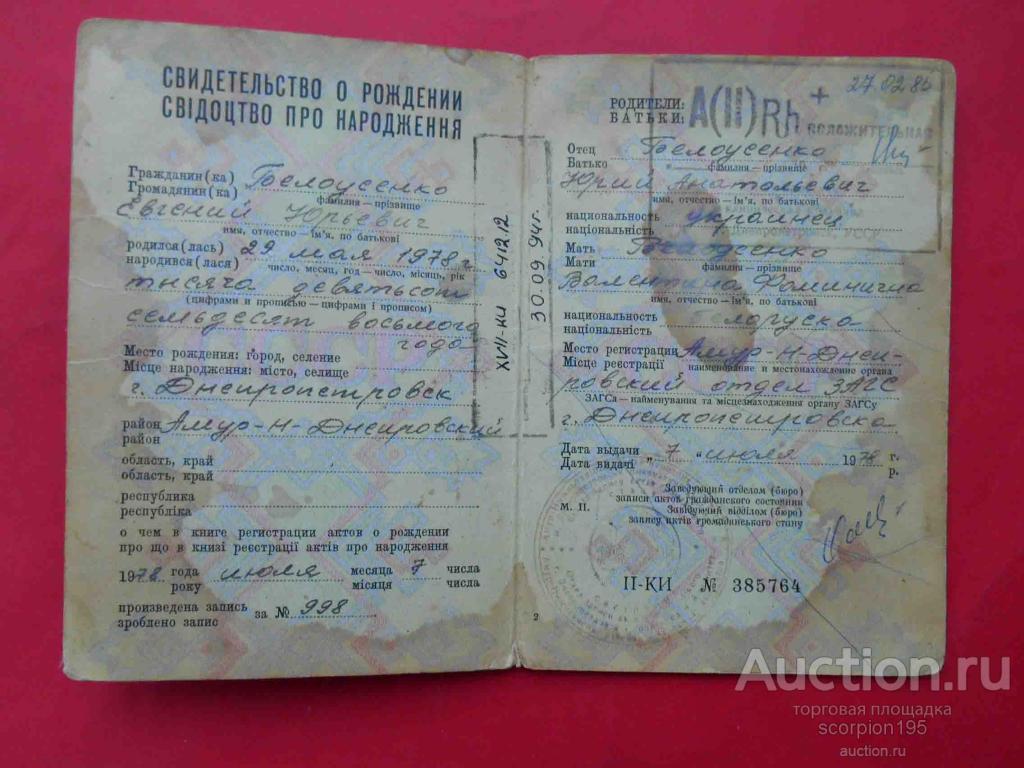 СВИДЕТЕЛЬСТВО О РОЖДЕНИИ
СВІДОЦТВО ПРО НАРОДЖЕННЯ
Гражданин(ка) Белоусенко
Громадянин(ка)
фамилия — прізвище
Евгений Юрьевич
имя, отчество — ім'я, по батькові
родился(лась) 29 мая 1978 г.
народився(лася) число, месяц, год — число, місяць, рік
тысяча девятьсот
(цифрами и прописью — цифрами і прописом)
семьдесят восьмого
года
Место рождения: город, селение
Місце народження: місто, селище
г. Днепропетровск
район Амур-Н-Днепровский
район
область, край
область, край
республика
республіка
о чем в книге регистрации актов о рождении
про що в книзі реєстрації актів про народження
1978 года июля месяца 7 числа
року місяця числа
произведена запись за № 998
зроблено запис
XVII-КИ 641212
30.09.94г.
27.02.86
РОДИТЕЛИ:
БАТЬКИ:
A(II)Rh +
ПОЛОЖИТЕЛЬНАЯ
Отец Белоусенко
Батько фамилия — прізвище
Юрий Анатольевич
имя, отчество — ім'я, по батькові
национальность украинец
національність
Мать Белоусенко
Мати фамилия — прізвище
Валентина Фоминична
имя, отчество — ім'я, по батькові
национальность белоруска
національність
Место регистрации Амур-Н-Днеп-
Місце реєстрації наименование и местонахождение органа
ровский отдел ЗАГС
ЗАГСа — найменування та місцезнаходження органу ЗАГСу
г. Днепропетровска
Дата выдачи „ 7 " июля 1978 г.
Дата видачі р.
Заведующий отделом (бюро)
М. П. записи актов гражданского состояния
Завідуючий відділом (бюро)
запису актів громадянського стану
II-КИ № 385764
2
Auction.ru
торговая площадка
scorpion195
auction.ru